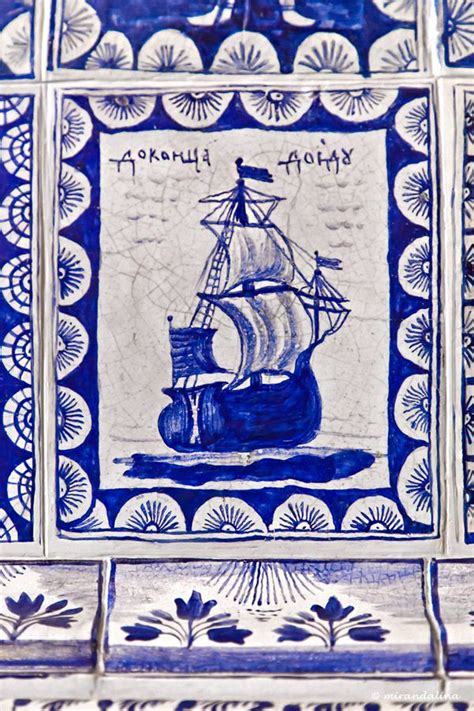 доконца дойду
© mirandalina